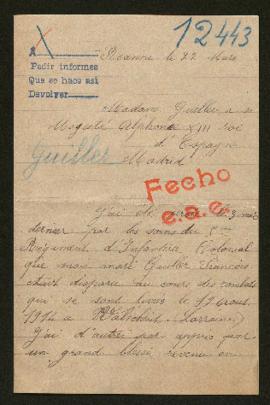 12443
A
Pedir informes
Que se haga así
Devolver
Roanne le 22 Mars
Madame Guiller a sa
Majesté Alphonse XIII roi
d'Espagne
Madrid
Guiller
Fecho
e.a.e.
J'ai été le 3 mai
dernier par les soins du 5me
Régiment d'Infanterie Colonial
que mon mari Guiller François
était disparu au cours des combats
qui se sont livrés le 17 août
1914 à Lorraine
J'ai d'autre part appris par
un grand blessé, revenu en